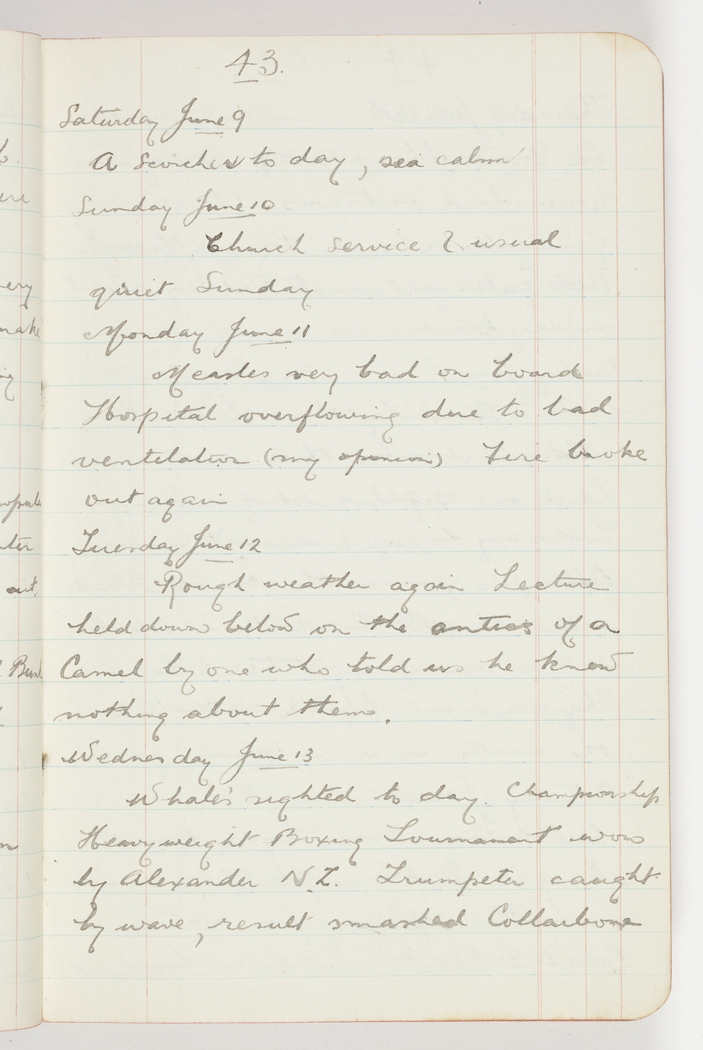 43.
Saturday June 9
A scorcher to day, sea calm
Sunday June 10
Church Service & usual
quiet Sunday
Monday June 11
Measles very bad on board
Hospital overflowing due to bad
ventilation (my opinion) Fire broke
out again
Tuesday June 12
Rough weather again Lecture
held down below on the antics of a
Camel by one who told us he knew
nothing about them.
Wednesday June 13
Whale's sighted to day. Championship
Heavyweight Boxing Tournament won
by Alexander N.Z. Trumpeter caught
by wave, result smashed Collarbone